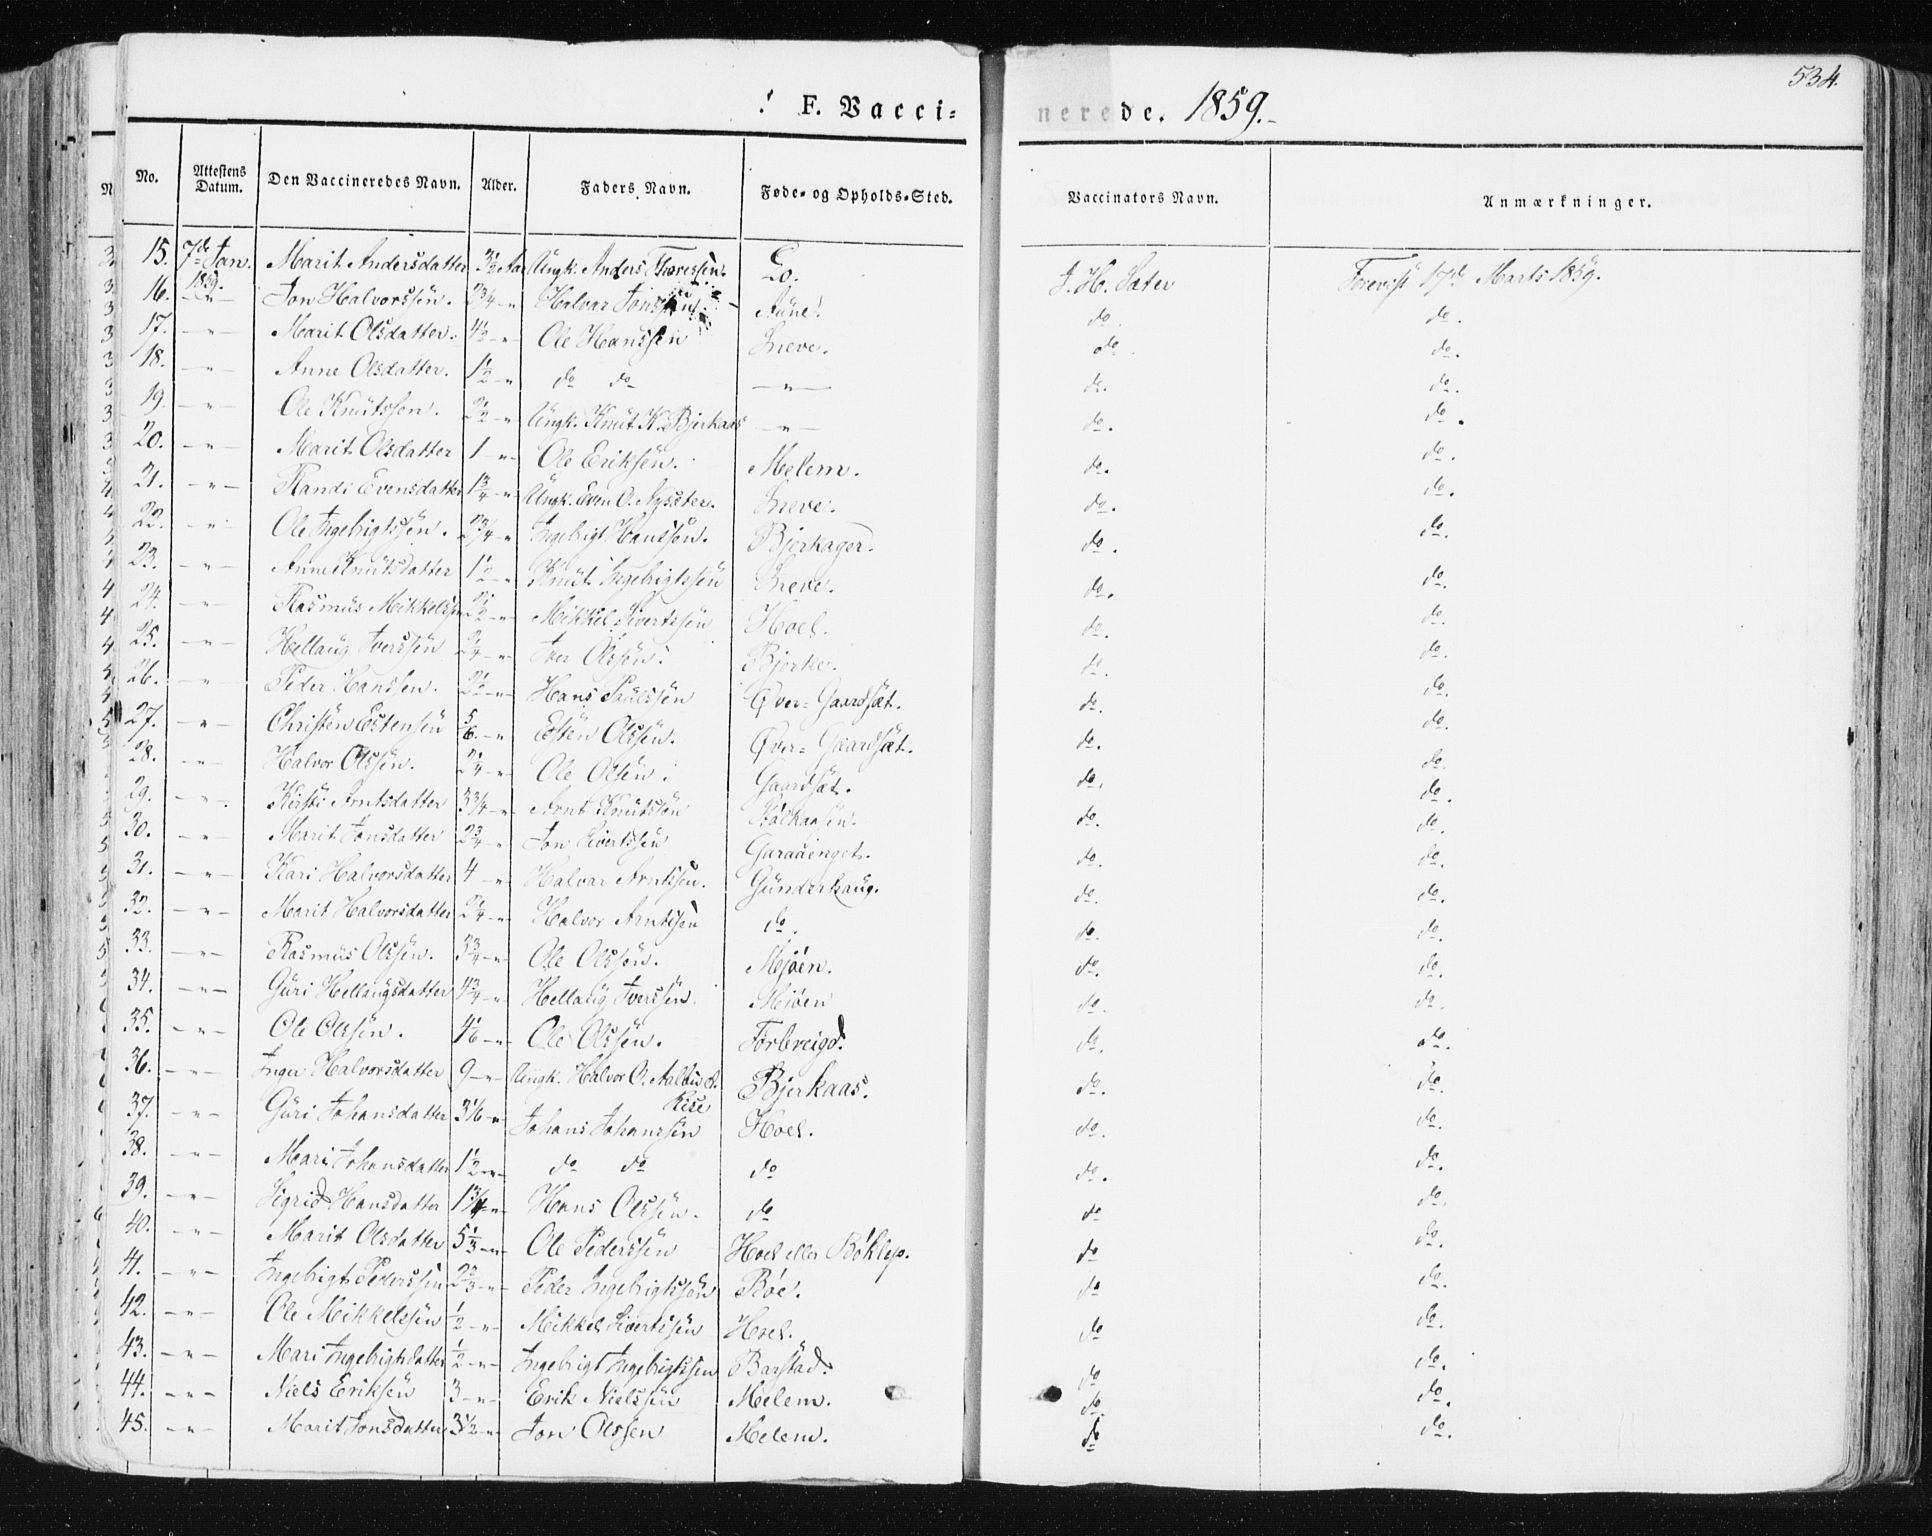 534.
! F. Vacci= nerede. 1859.
No. Attestens Datum. Den Vaccineredes Navn. Alder. Faders Navn. Føde= og Opholds=Sted. Vaccinators Navn. Anmærkninger.
15. 7de Jan. 1859. Marit Andersdatter 3½ Aar Ungk. Anders Thoressen. Lo. J. H. Sæter Forevist 17de Marts 1859.
16. -"- Jon Halvorssen. 2¾ -"- Halvor Jonssen Aune. do. do.
17. -"- Marit Olsdatter. 4½ -"- Ole Hanssen Sneve. do. do.
18. -"- Anne Olsdatter. 1½ -"- do do -"- do. do.
19. -"- Ole Knutssen. 2½ Ungk. Knut K. Bjerkaas -"- do. do.
20. -"- Marit Olsdatter 1 -"- Ole Eriksen. Melem. do. do.
21. -"- Randi Evensdatter 1¾ -"- Ungk. Even O. Nysæter. Sneve. do. do.
22. -"- Ole Ingebrigtssen. 2¾ -"- Ingebrigt Hanssen. Bjerkager. do. do.
23. -"- Anne Knutsdatter 1½ -"- Knut Ingebrigtssen Sneve. do. do.
24. -"- Rasmus Mikkelssen 2½ -"- Mikkel Sivertssen Hoel. do. do.
25. -"- Hellaug Iverssen 2¼ -"- Iver Olssen. Bjerke. do. do.
26. -"- Peder Hanssen. 2½ -"- Hans Paulssen Øver=Gaardsæt. do. do.
27. -"- Christen Estensen 5/6 -"- Esten Olssen. Øver=Gaardsæt. do. do.
28. -"- Halvor Olssen. 2¼ -"- Ole Olsen. Gaardsæt. do. do.
29. -"- Kirsti Arntsdatter 3¾ -"- Arnt Knutssen do. do.
30. -"- Marit Jonsdatter 2¾ -"- Jon Sivertssen Garaaenget. do. do.
31. -"- Kari Halvorsdatter 4 -"- Halvor Arntssen. Gunderhaug. do. do.
32. -"- Marit Halvorsdatter 2¼ -"- Halvor Arntssen do. do. do.
33. -"- Rasmus Olssen. 3¾ -"- Ole Olssen. Mjøen. do. do.
34. -"- Guri Hellaugsdatter 4¾ -"- Hellaug Iverssen. Mjøen do. do.
35. -"- Ole Olssen. 4 1/6 -"- Ole Olssen. Forbreigd. do. do.
36. -"- Inger Halvorsdatter 9 -"- Ungk. Halvor O. Rise Bjerkaas. do. do.
37. -"- Guri Johansdatter 3 1/6 -"- Johans Johanssen Hoel. do. do.
38. -"- Mari Johansdatter 1½ -"- do do do do. do.
39. -"- Sigrid Hansdatter 1¾ -"- Hans Olssen. do do do.
40. -"- Marit Olsdatter 5⅓ -"- Ole Pederssen Hoel eller Böklep. do do.
41. -"- Ingebrigt Pederssen 2⅔ -"- Peder Ingebrigtssen Böe. do do.
42. -"- Ole Mikkelssen ½ -"- Mikkel Sivertssen Hoel. do do.
43. -"- Mari Ingebrigtsdatter ½ -"- Ingebrigt Ingebrigtssen Barstad. do do.
44. -"- Niels Eriksen 3 -"- Erik Nielssen Melem. do. do.
45. -"- Marit Jonsdatter 3½ -"- Jon Olssen Melem. do do.